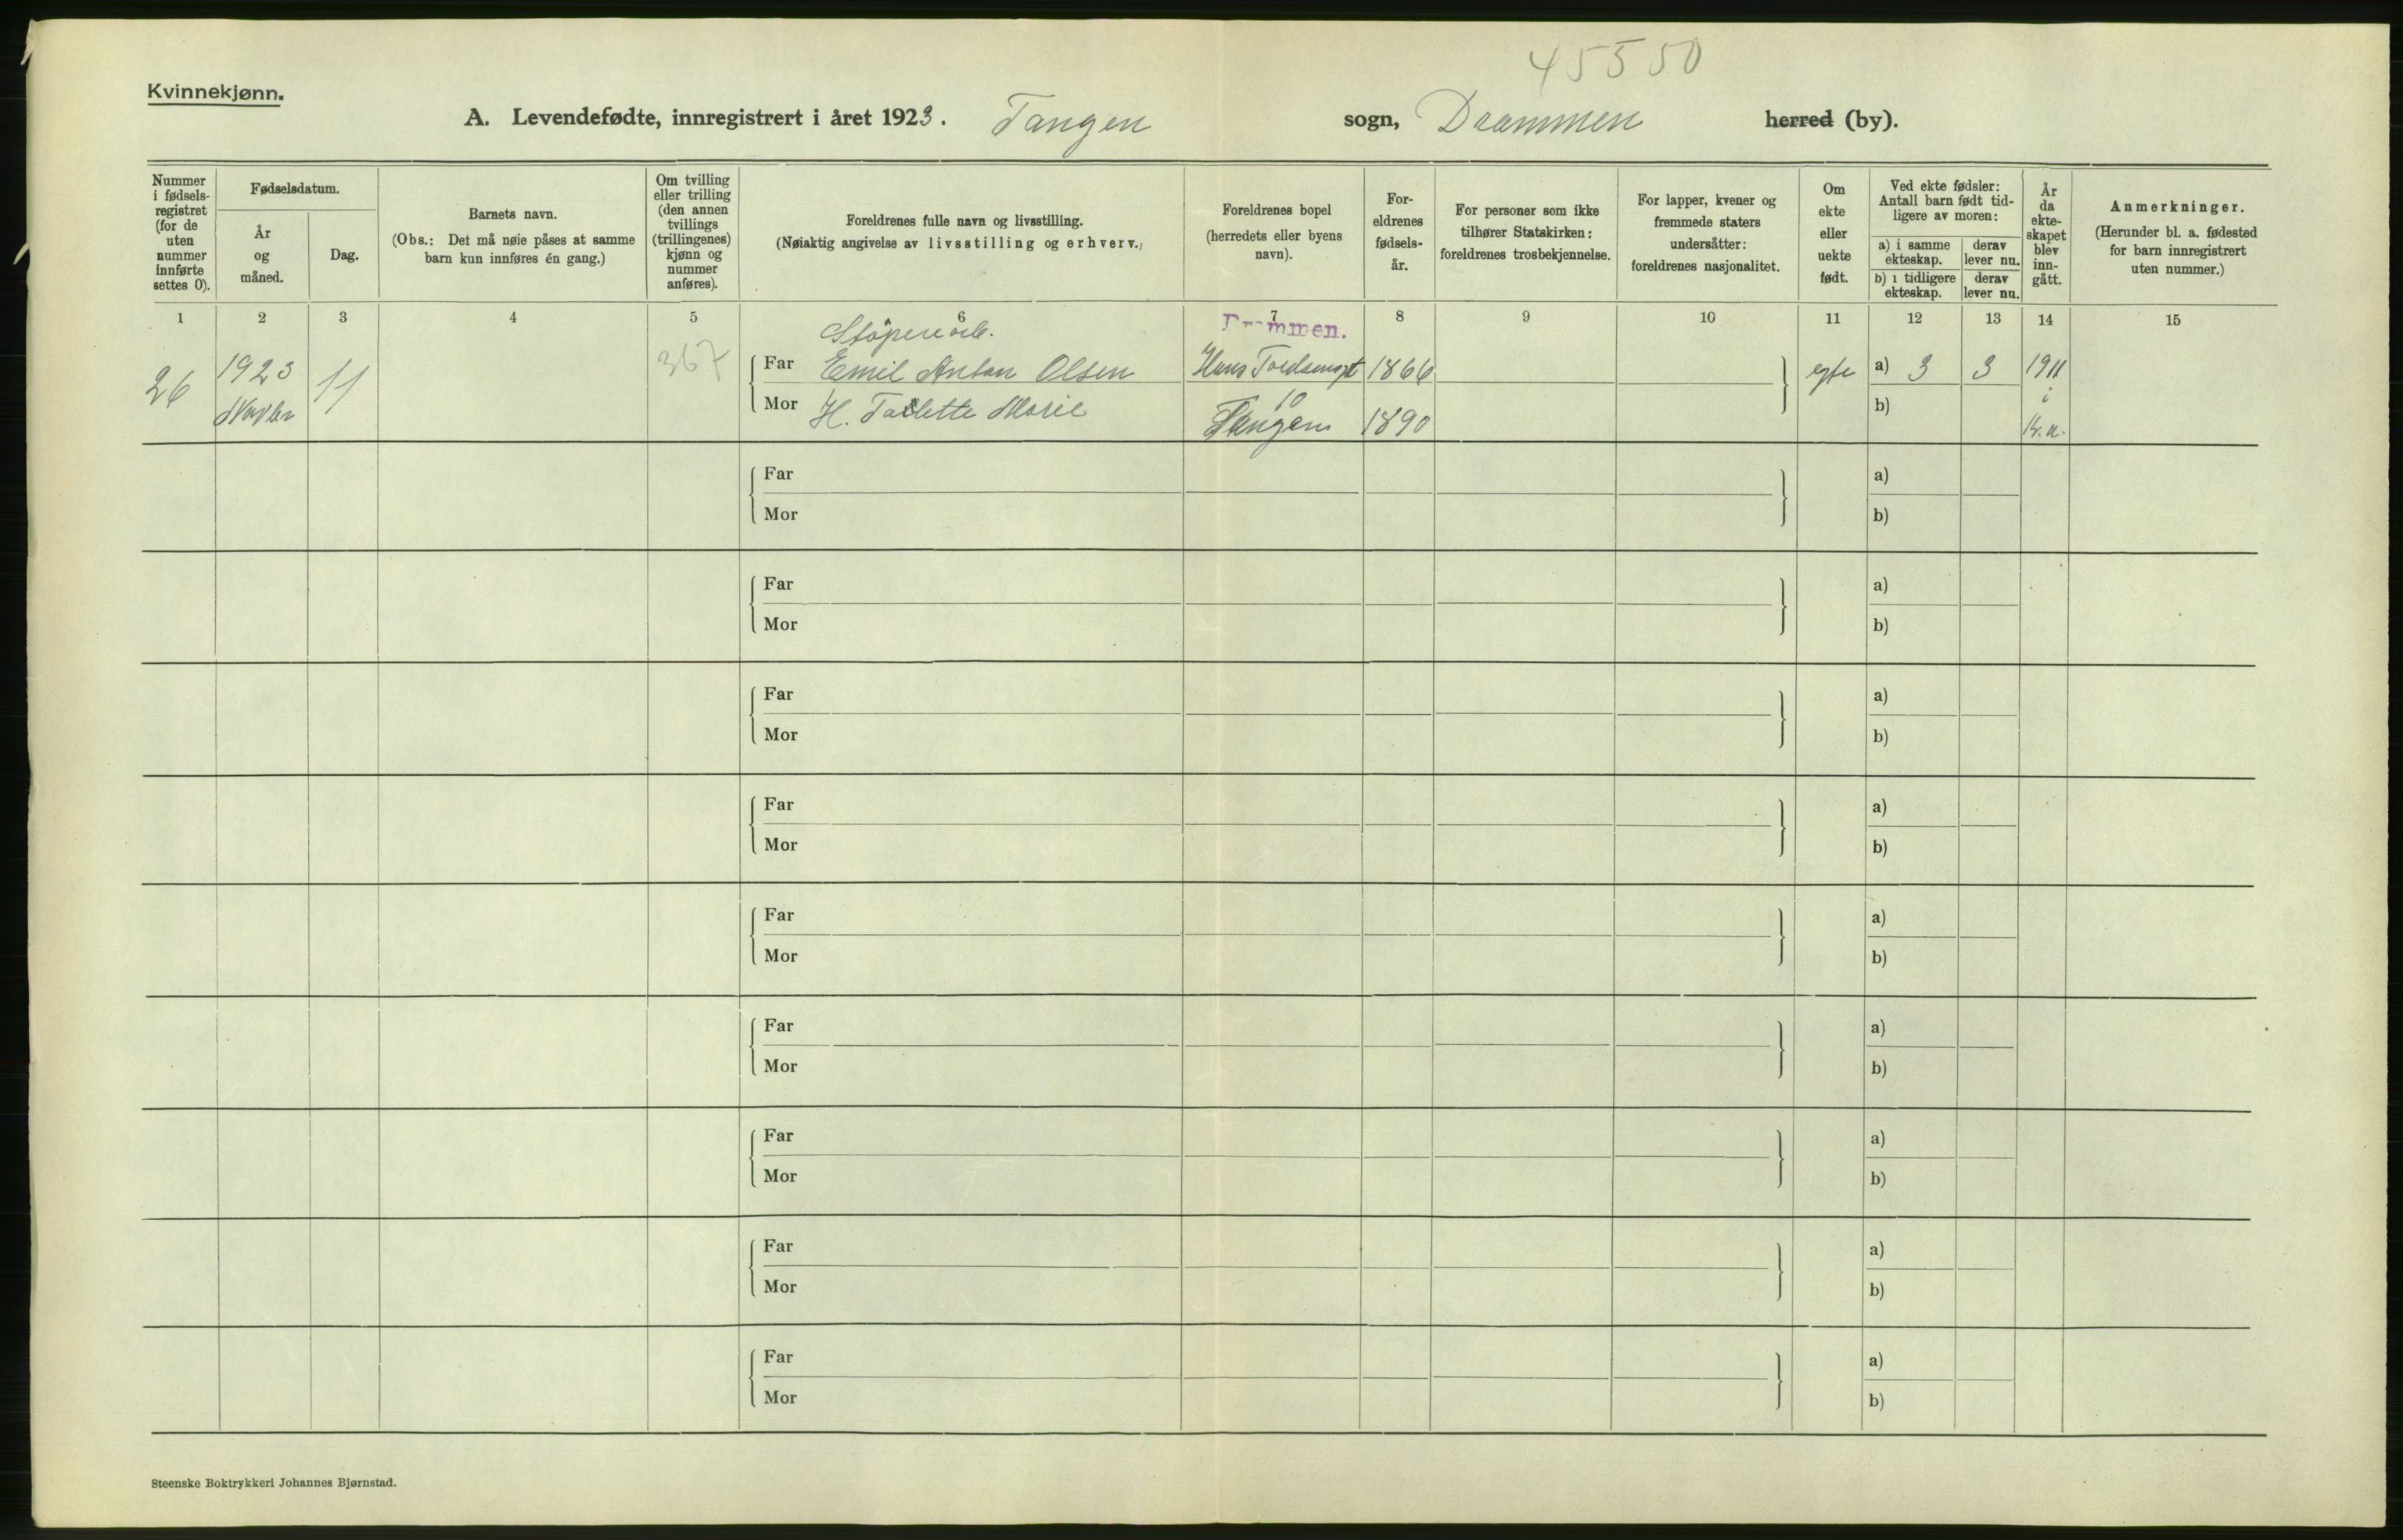 45550
Kvinnekjønn.
A. Levendefødte, innregistrert i året 1923. Tangen sogn, Drammen herred (by).
Nummer i fødsels-registret (for de uten nummer innførte settes 0).
Fødselsdatum.
År og måned.
Dag.
Barnets navn.
(Obs.: Det må nøie påses at samme barn kun innføres én gang.)
Om tvilling eller trilling (den annen tvillings (trillingenes) kjønn og nummer anføres).
Foreldrenes fulle navn og livsstilling.
(Nøiaktig angivelse av livsstilling og erhverv.)
Foreldrenes bopel (herredets eller byens navn).
For-eldrenes fødsels-år.
For personer som ikke tilhører Statskirken: foreldrenes trosbekjennelse.
For lapper, kvener og fremmede staters undersåtter: foreldrenes nasjonalitet.
Om ekte eller uekte født.
Ved ekte fødsler: Antall barn født tid-ligere av moren:
a) i samme ekteskap. derav lever nu.
b) i tidligere ekteskap. derav lever nu.
År da ekte-skapet blev inn-gått.
Anmerkninger.
(Herunder bl. a. fødested for barn innregistrert uten nummer.)
1 2 3 4 5 6 7 8 9 10 11 12 13 14 15
Støperiarb. Drammen.
26 1923 11 367 Far Emil Anton Olsen Hans 1866 egte a) 3 3 1911
Novbr Mor H. Marie 10 Tangen 1890 b) i Kr.a.
Far a)
Mor b)
Far a)
Mor b)
Far a)
Mor b)
Far a)
Mor b)
Far a)
Mor b)
Far a)
Mor b)
Far a)
Mor b)
Far a)
Mor b)
Far a)
Mor b)
Steenske Boktrykkeri Johannes Bjørnstad.